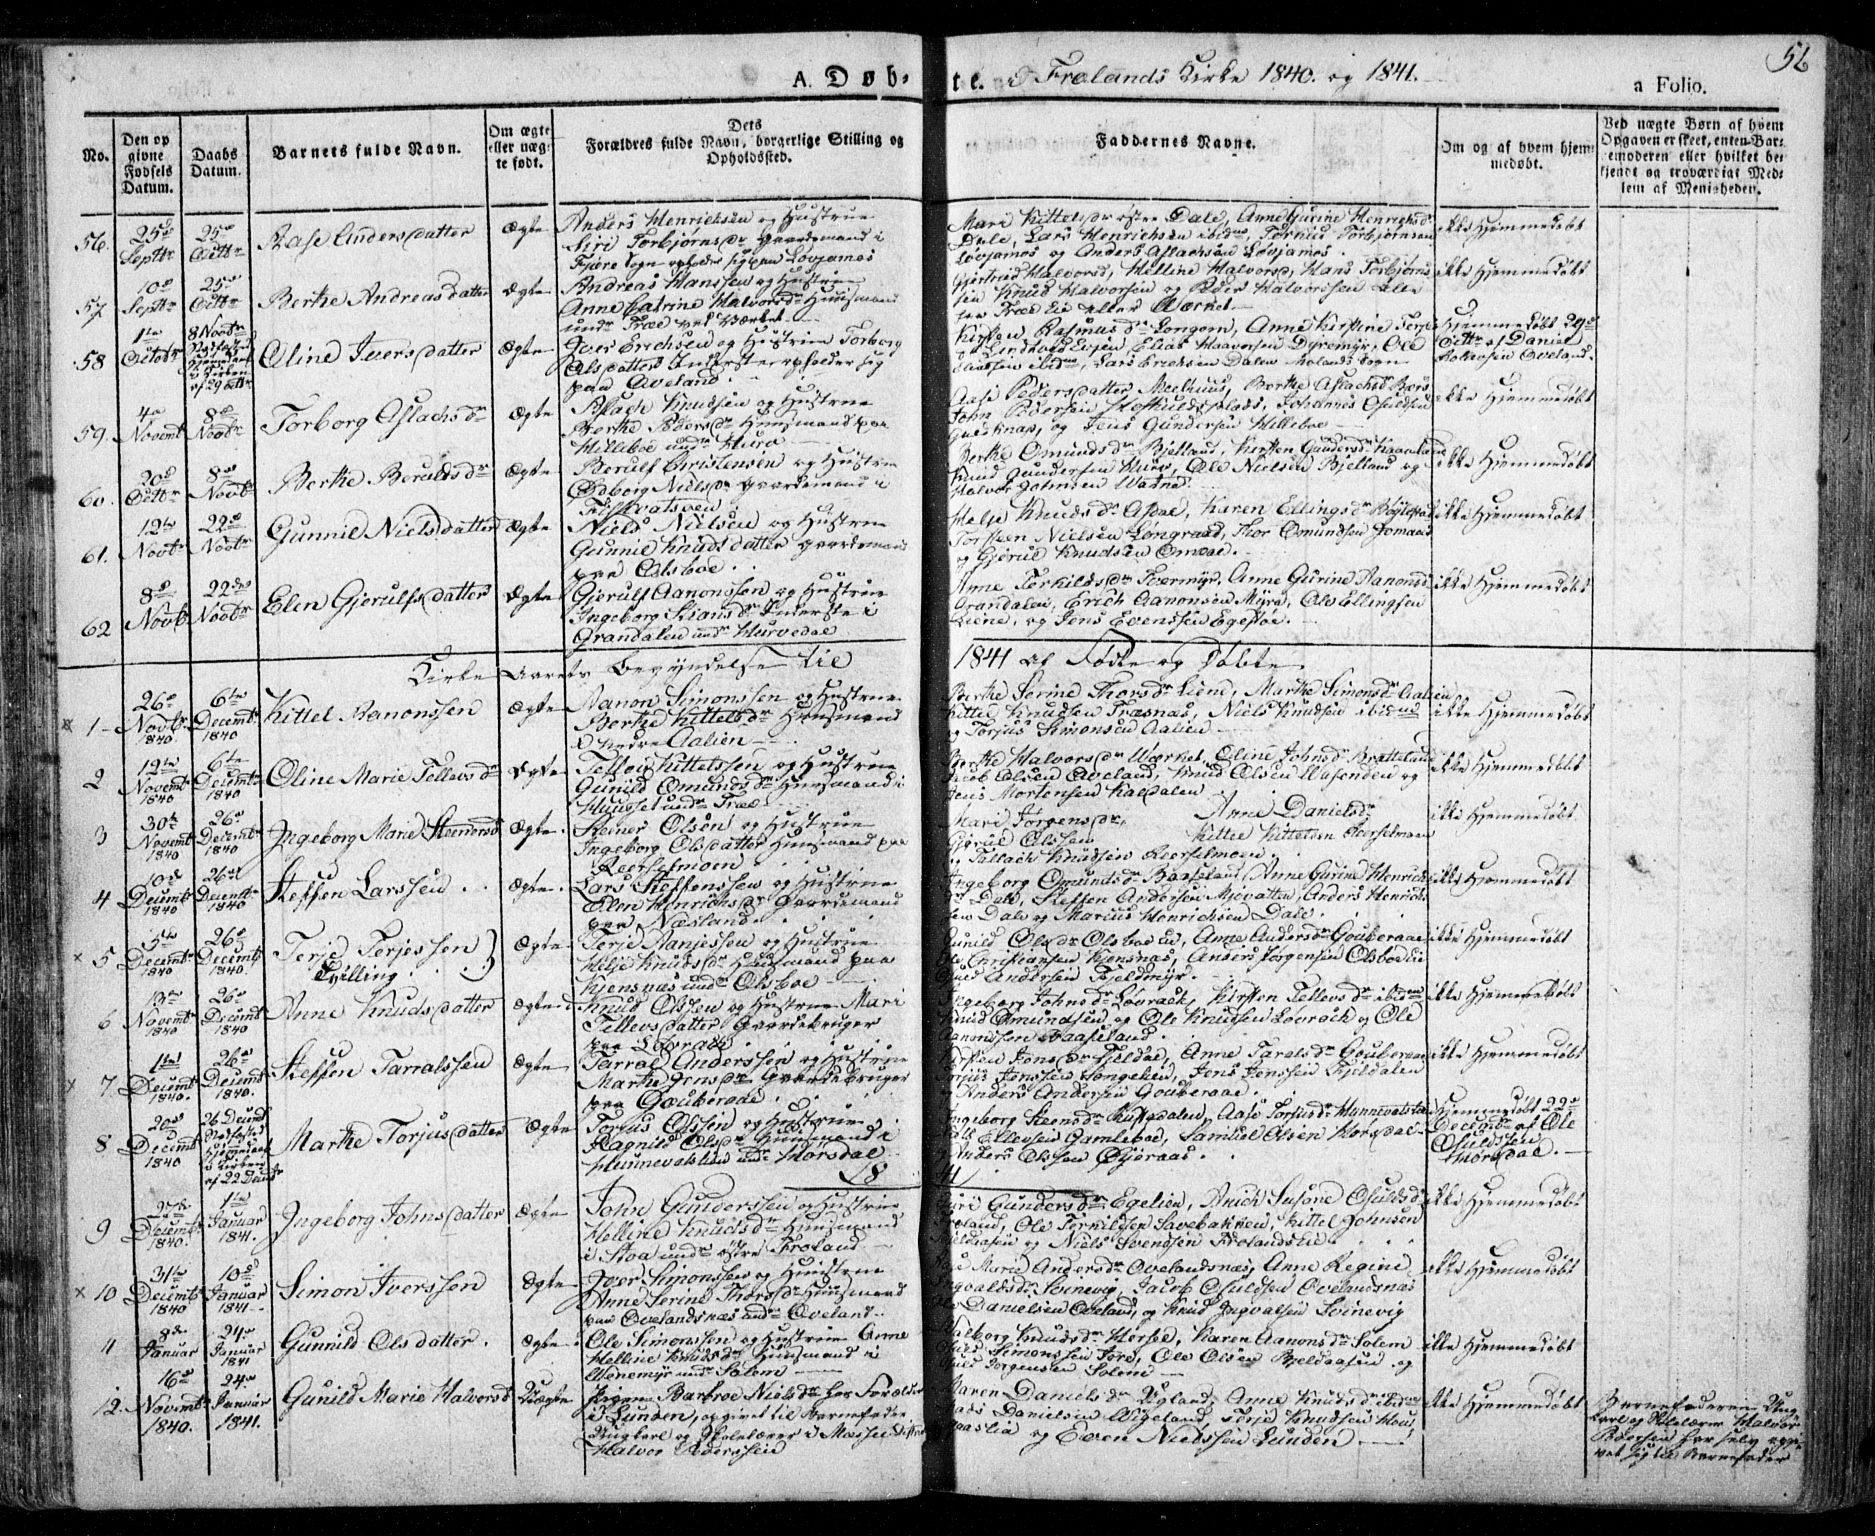 56
A. Døb- te. i Frolands Kirke 1840. og 1841.
a Folio.
No.
Den op
givne
Fødsels
Datum.
Daabs
Datum.
Barnets fulde Navn.
Om ægte
eller næg
te født.
Dets
Forældres fulde Navn, borgerlige Stilling og
Opholdssted.
Faddernes Navne.
Om og af hvem hjem-
medøbt.
Ved nægte Børn af hvem
Opgaven er skeet, enten Bar-
nemoderen eller hvilket be-
kjendt og troværdigt Med-
lem af Menigheden.
56.
25de
Septbr
25de
Octbr
Aase Andersdatter
Ægte
Anders Henrichsen og Hustrue
Siri Torbjørnsdr Gaardemand i
Fjære Sogn opholder sig paa Løvjomås
Mari Kittelsdr østre Dale, Anne Gurine Henrichsd
Dale, Lars Henrichsen ibidm, Torkild Torbjørnsen
Løvjomås og Anders Aslachsen Løvjomås.
ikke Hjemmedøbt
57
10de
Septbr
25de
Octbr
Berthe Andreasdatter
Ægte
Andreas Hanssen og Hustrue
Anne Catrine Halvorsdr Huusmand
undr Træe ved Værket
Gjertrud Halvorsd, Helline Halvorsd, Hans Torbjørns
sen Knud Halvorsen og Peder Halvorssen alle
fra Træe Eie eller Værket
ikke Hjemmedøbt
58
1te
Octobr
8 Novbr
Oline Iversdatter
Ægte
Iver Erichsen og Hustrue Torborg
Olsdatter Inderster opholder sig
paa Aveland.
Kirsten Rasmusdr Longum, Anne Kirstine Terjes
Elias Haavorsen Dyremyr, Ole
Lars Erichsen Dalen Holands Sogn
Hjemmedøbt 29de
Octbr af Daniel
Aveland.
59.
4de
Novemb
8de
Novbr
Torborg Aslachsdr
Ægte
Aslach Knudsen og Hustrue
Berthe Pedersdr Huusmand paa
Hilleboe undr Mura
Aase Pedersdatter Mælhuus, Berthe Aslachsd
John Pedersen
og Jens Gundersen Hilleboe
ikke Hjemmedøbt
60.
20de
Octbr
8de
Novbr
Berthe Berulfsdr
Ægte
Berulf Christensen og Hustrue
Nielsdr Gaardemand i
Berthe Omundsdr Bjelland, Kirsten Gundersdr
Knud Gundersen Mura, Ole Nielsen Bjelland og
Halvor Johnsen
ikke Hjemmedøbt
61.
12te
Novbr
22de
Novbr
Gunnild Nielsdatter
Ægte
Niels Nielsen og Hustrue
Gunnild Knudsdatter Gaardemand
paa Olsboe.
Helje Knudsdr Asdal, Karen Ellingsdr Bøylestad
Torsteen Nielsen Løngraad, Thor Omundsen
og Gjerul Knudsen Omdal.
ikke Hjemmedøbt
62
8de
Novbr
22de
Novbr
Elen Gjerulfsdatter
Ægte
Gjerulf Aanonssen og Hustrue
Ingeborg Kiansdr Inderste i
Grandalen undr Hurvedal
Anne Terkildsdr Tvermyr, Anne Gurine Aanonsd
Grandalen, Erich Aanonsen Myra, Ole Ellingsen
Liene, og Jens Evensen Egestøe.
ikke Hjemmedøbt
Kirke Aarets Begyndelse til 1841 af Fødte og Døbte.
1
26de
Novbr
1840.
6te
Decemb
1840
Kittel Aanonssen
Ægte
Aanon Simonssen og Hustrue
Berthe Kittelsdr Huusmand
i Nedre Aalien
Berthe Serine Thorsdr Liene, Marthe Simonsdr Aalien
Kittel Knudsen Træsnæs, Niels Knudsen ibidm
og Torjus Simonsen Aalien
ikke Hjemmedøbt
2
19de
Novemb
1840
6te
Decembr
1840
Oline Marie Tellevsdr
Ægte
Tellov Kittelssen og Hustrue
Gunild Omundsdr Huusmand i
Huuset undr Træe
Berthe Halvorsdr Værket, Oline Johnsd Brattland
Jacob Olsen Aveland, Knud Olsen Vasenden og
Jens Mortensen Kaldalen
ikke Hjemmedøbt
3
30te
Novemb
1840
26de
Decemb
1840
Ingeborg Marie Steenersd
Ægte.
Steener Olsen og Hustrue
Ingeborg Olsdatter Huusmand paa
Reerselmoen
Mari Jørgensdr, Anne Danielsdr
Gjerul Olssen Kittel Kittelsen Reerselmoen
og Tallach Knudsen Reerselmoen.
ikke Hjemmedøbt
4
10de
Decemb
1840
26de
Decembr
1840
Steffen Larssen
Ægte.
Lars Steffensen og Hustrue
Elen Henrichsdr Gaardemand
paa Næsland.
Ingeborg Omundsdr Baaseland, Anne Gurine Henrichs
dr Dale, Steffen Andersen Mjøvatten, Anders Henrichs
sen Dale og Marius Henrichsen Dale.
ikke Hjemmedøbt
5
5te
Decembr
1840
26de
Decemb
1840.
Terje Terjessen
Tvilling
Ægte
Terje Nanjessen og Hustrue
Helje Knudsdr Huusmand paa
Kjensnæs undr Olsboe
Gunild Olsdr Olsboe Eie, Anne Andersdr Gouberaae
Ole Christiansen Kjensnæs, Anders Jørgensen Olsboe Eie
Gjul Andersen Fjeldmyr.
ikke Hjemmedøbt
6
13de
Novembr
1840
26de
Decemb
1840
Anne Knudsdatter
Ægte
Knud Olssen og Hustrue Mari
Tellevsdatter Gaardebruger
paa Løvrach
Ingeborg Johnsdr Løvrach, Kirsten Tellevsdr ibidem
Knud Omundsen og Ole Knudsen Løvrach og Ole
Aanonssen Baaseland.
ikke Hjemmedøbt
7
1te
Decemb
1840.
26de
Decemb
1840.
Steffen Tarralssen
Ægte
Tarral Anderssen og Hustrue
Marthe Jensdr Gaardebruger
paa Gouberaae.
Kirsten Jensdr Fjeldal, Anne Taralsdr Gouberaae
Torjus Jenssen Songelien, Jens Jenssen Fjeldalen
og Anders Andersen Gouberaae.
ikke Hjemmedøbt
8
20de
Decemb
1840
26 Decemb
i Kirken
af 22 Decemb
Marthe Torjusdatter
Ægte
Torjus Olssen og Hustrue
Ragnild Olsdr Huusmand i
Hunnevolstien undr Morsdal
Ingeborg Steensdr Rustdalen, Aase Torjusdr Hunnevolstien
Ellevsen Gamleboe, Samuel Olsen Morsdal
og Anders Olssen Øyeraas.
Hjemmedøbt 22de
Decembr af Ole
Osuldssen
Morsdal.
18 41
9
Decembr
1840.
1te
Januar
1841.
Ingeborg Johnsdatter
Ægte
John Gunderssen og Hustrue
Helline Knudsdr Huusmand
i Stoa undr østre Froland
Siri Gundersdr Egelien, Anich Susane Osuldsd
Froland, Ole Terkildsen Savebakken, Kittel Johnsen
og Niels Svendsen Frolandseie.
ikke Hjemmedøbt
10
31te
Decembr
1840
10de
Januar
1841.
Simon Iverssen
Ægte
Iver Simonssen og Hustrue
Anne Serine Thorsdr Huusmand
paa Ovelandsnæs undr Oveland.
Marie Andersdr Ovelandsnæs, Anne Regine
Ingvaldsdr Svinevig, Jacob Osuldsen Ovelandsnæs
Ole Danielsen Oveland, og Knud Ingvalsen Svinevig
ikke Hjemmedøbt
11
8de
Januar
24de
Januar
1841
Gunnild Olsdatter.
Ægte
Ole Simonssen og Hustrue Anne
Helline Knudsdr Huusmand i
undr Solem
Valborg Knudsdr Herse, Karen Aanonsdr Solem
Simonssen Jore, Ole Olsen og
Gjul Jørgensen Solem
ikke Hjemmedøbt
12.
16de
Novembr
1840.
24de
Januar
1841.
Gunild Marie Halvorsd
Uægte
Pigen Barbroe Nielsdr hos Forældre
i Lunden, opgivet til Barnefader
Ungkarl og Skolelærer i
Halvor Pederssen
Maren Danielsdr Ugland, Anne Knudsdr ibidm
Mads Danielsen Vigeland, Terje Knudssen
og Even Nielssen Lunden
ikke Hjemmedøbt
Barnefaderen Ung
karl og Skolelærer Halvor
Pedersen har selv opgi-
vet sig til Barnefader